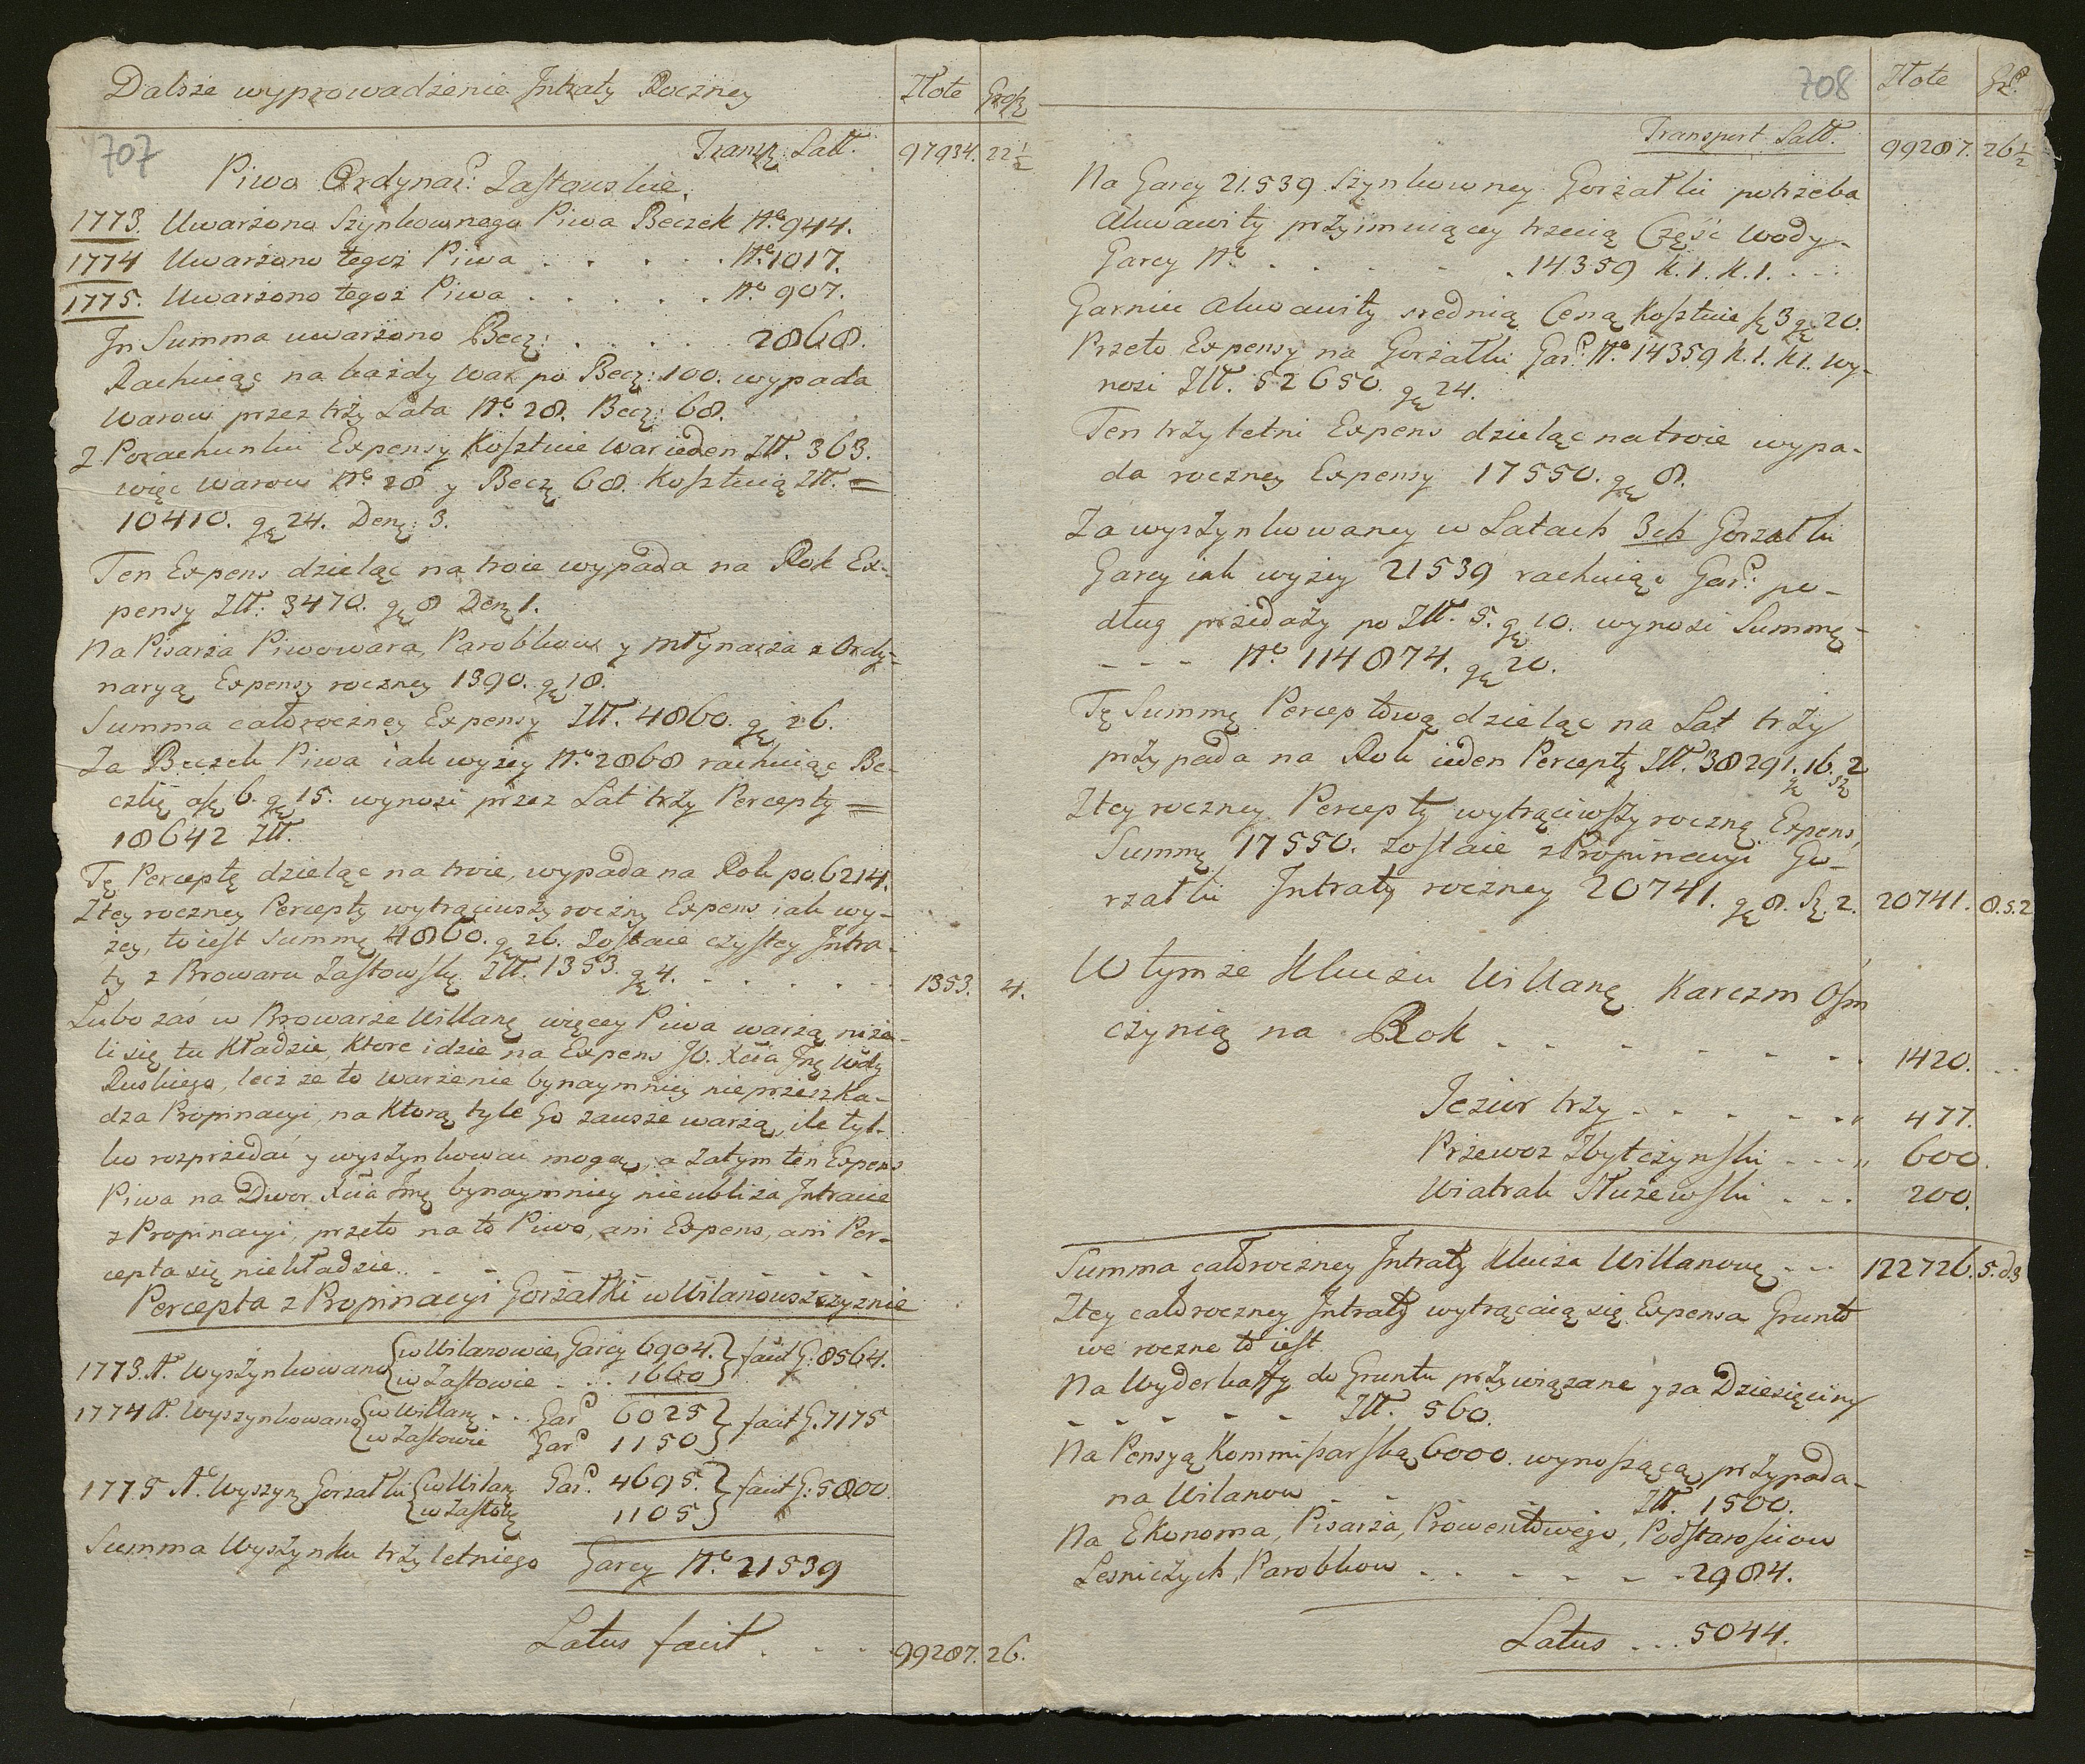 Dalsze wyprowadzenie Jntraty Roczney
Złote Grosz
707
Transp: Latt. 97934. 22 1/2
Piwo Ordynar: Zastowskie
1773. Uwarzono Szynkownego Piwa Beczek No 944.
1774 Uwarzono tegoż Piwa . . . . . No 1017.
1775. Uwarzono tegoż Piwa . . . . . No 907.
Jn Summa uwarzono Becz: . . . . . 2868.
Rachuiąc na każdy War po Becz: 100. wypada
Warow przez trzy Lata No 28. Becz: 68.
Z Porachunku Expensy Kosztuie War ieden Złł. 363.
więc Warow No 28 y Becz 68. Kosztuią Złł. =
10410. gr 24. Den: 3.
Ten Expens dzieląc na troie wypada na Rok Ex-
pensy Złł: 3470. gr 8 Den 1.
Na Pisarza Piwowara, Parobkow y młynarza z Ordy-
naryą Expensy roczney 1390. gr 18.
Summa całoroczney Expensy Złł. 4860. gr 26.
Za Beczek Piwa iak wyżey No 2868 rachuiąc Be-
czkę a fl 6. gr 15. wynosi przez Lat trzy Percepty =
18642 Złł.
Tę Perceptę dzieląc na troie, wypada na Rok po 6214.
Z tey roczney Percepty wytrąciwszy roczny Expens iak wy-
żey, to iest Summę 4860. gr 26. Zostaie czystey Jntra-
ty z Browaru Zastowskę Złł. 1353. gr 4. . . . . . . 1353. 4.
Lubo zaś w Browarze Willanę więcey Piwa warzą niże-
li się tu Kładzie, Ktore idzie na Expens JO. Xcia Jmę Wdy
Ruskiego, lecz że to warzenie bynaymniey nie przeszka-
dza Propinacyi, na Ktorą tyle Go zawsze warzą, ile tyl-
ko rozprzedać y wyszynkować mogą, a zatym ten Expens
Piwa na Dwor Xcia Jmę bynaymniey nie ubliża Jntracie
z Propinacyi, przeto na to Piwo, ani Expens, ani Per-
cepta się nie kładzie. . - - - - - -
Percepta z Propinacyi Gorzałki w Wilanowszczyznie
1773. A. Wyszynkowano { w Wilanowie, Garcy 6904. } facit G: 8564.
{ w Zastowie . . . 1660 }
1774 A. Wyszynkowano { w Willanę . . . Gar: 6025 } facit G. 7175
{ w Zastowie Gar: 1150 }
1775 A. Wyszyn Gorzałki { w Wilanę Gar: 4695. } facit G: 5800.
{ w Zastowę 1105 }
Summa Wyszynku trzyletniego Garcy No 21539
Latus facit . . . . 99287. 26.
708
Złote Gr:
Transport Latt. 99287. 26 1/2
Na Garcy 21.539 Szynkowney Gorzałki potrzeba
Akwawity przyimuiącey trzecią Część Wody-
Garcy No . . . . . 14359 K. 1. K. 1. . . .
Garniec Akwawity srednią Ceną Kosztuie fl 3 gr 20.
Przeto Expensy na Gorzałki Gar: No 14359 K. 1. K1. wy-
nosi Złł. 52650. gr 24.
Ten trzyletni Expens dzieląc na troie wypa-
da roczney Expensy 17550. gr 8.
Za wyszynkowaney w Latach 3ch Gorzałki
Garcy iak wyżey 21539 rachuiąc Gar: po-
dług przedaży po Złł. 5. gr 10. wynosi Summę-
- - - No 114874. gr 20.
Tę Summę Perceptową dzieląc na Lat trzy
przypada na Rok ieden Percepty Złł. 38291. gr 16. sz 2
Z tey roczney Percepty wytrąciwszy roczną Expens,
Summę 17550. zostaie z Propinacyi Go-
rzałki Jntraty roczney 20741. gr 8. Sz. 2. 20741. 8. s. 2
W tymże Kluczu Willanę Karczm Osm
czynią na Rok - - - - - - . . 1420. . .
Jezior trzy - . - . - . „ 477.
Przewoz Zbytczynski - - - „ 600.
Wiatrak Służewski . - . 200.
Summa całoroczney Jntraty Klucza Willanowę - - - 122726. 5. d. 3
Z tey całoroczney Jntraty wytrącaią się Expensa Grunto
we roczne to iest
Na Wyderkaffy do Gruntu przywiązane y za Dziesięciny
- - - - - - Złł. 560.
Na Pensyą Kommissarską 6000. wynoszącą przypada-
na Wilanow - - - - - - . Złł. 1500.
Na Ekonoma, Pisarza, Prowentowego, Podstarosciow
Lesniczych, Parobkow . . . - - - 2984.
Latus . . . 5044.